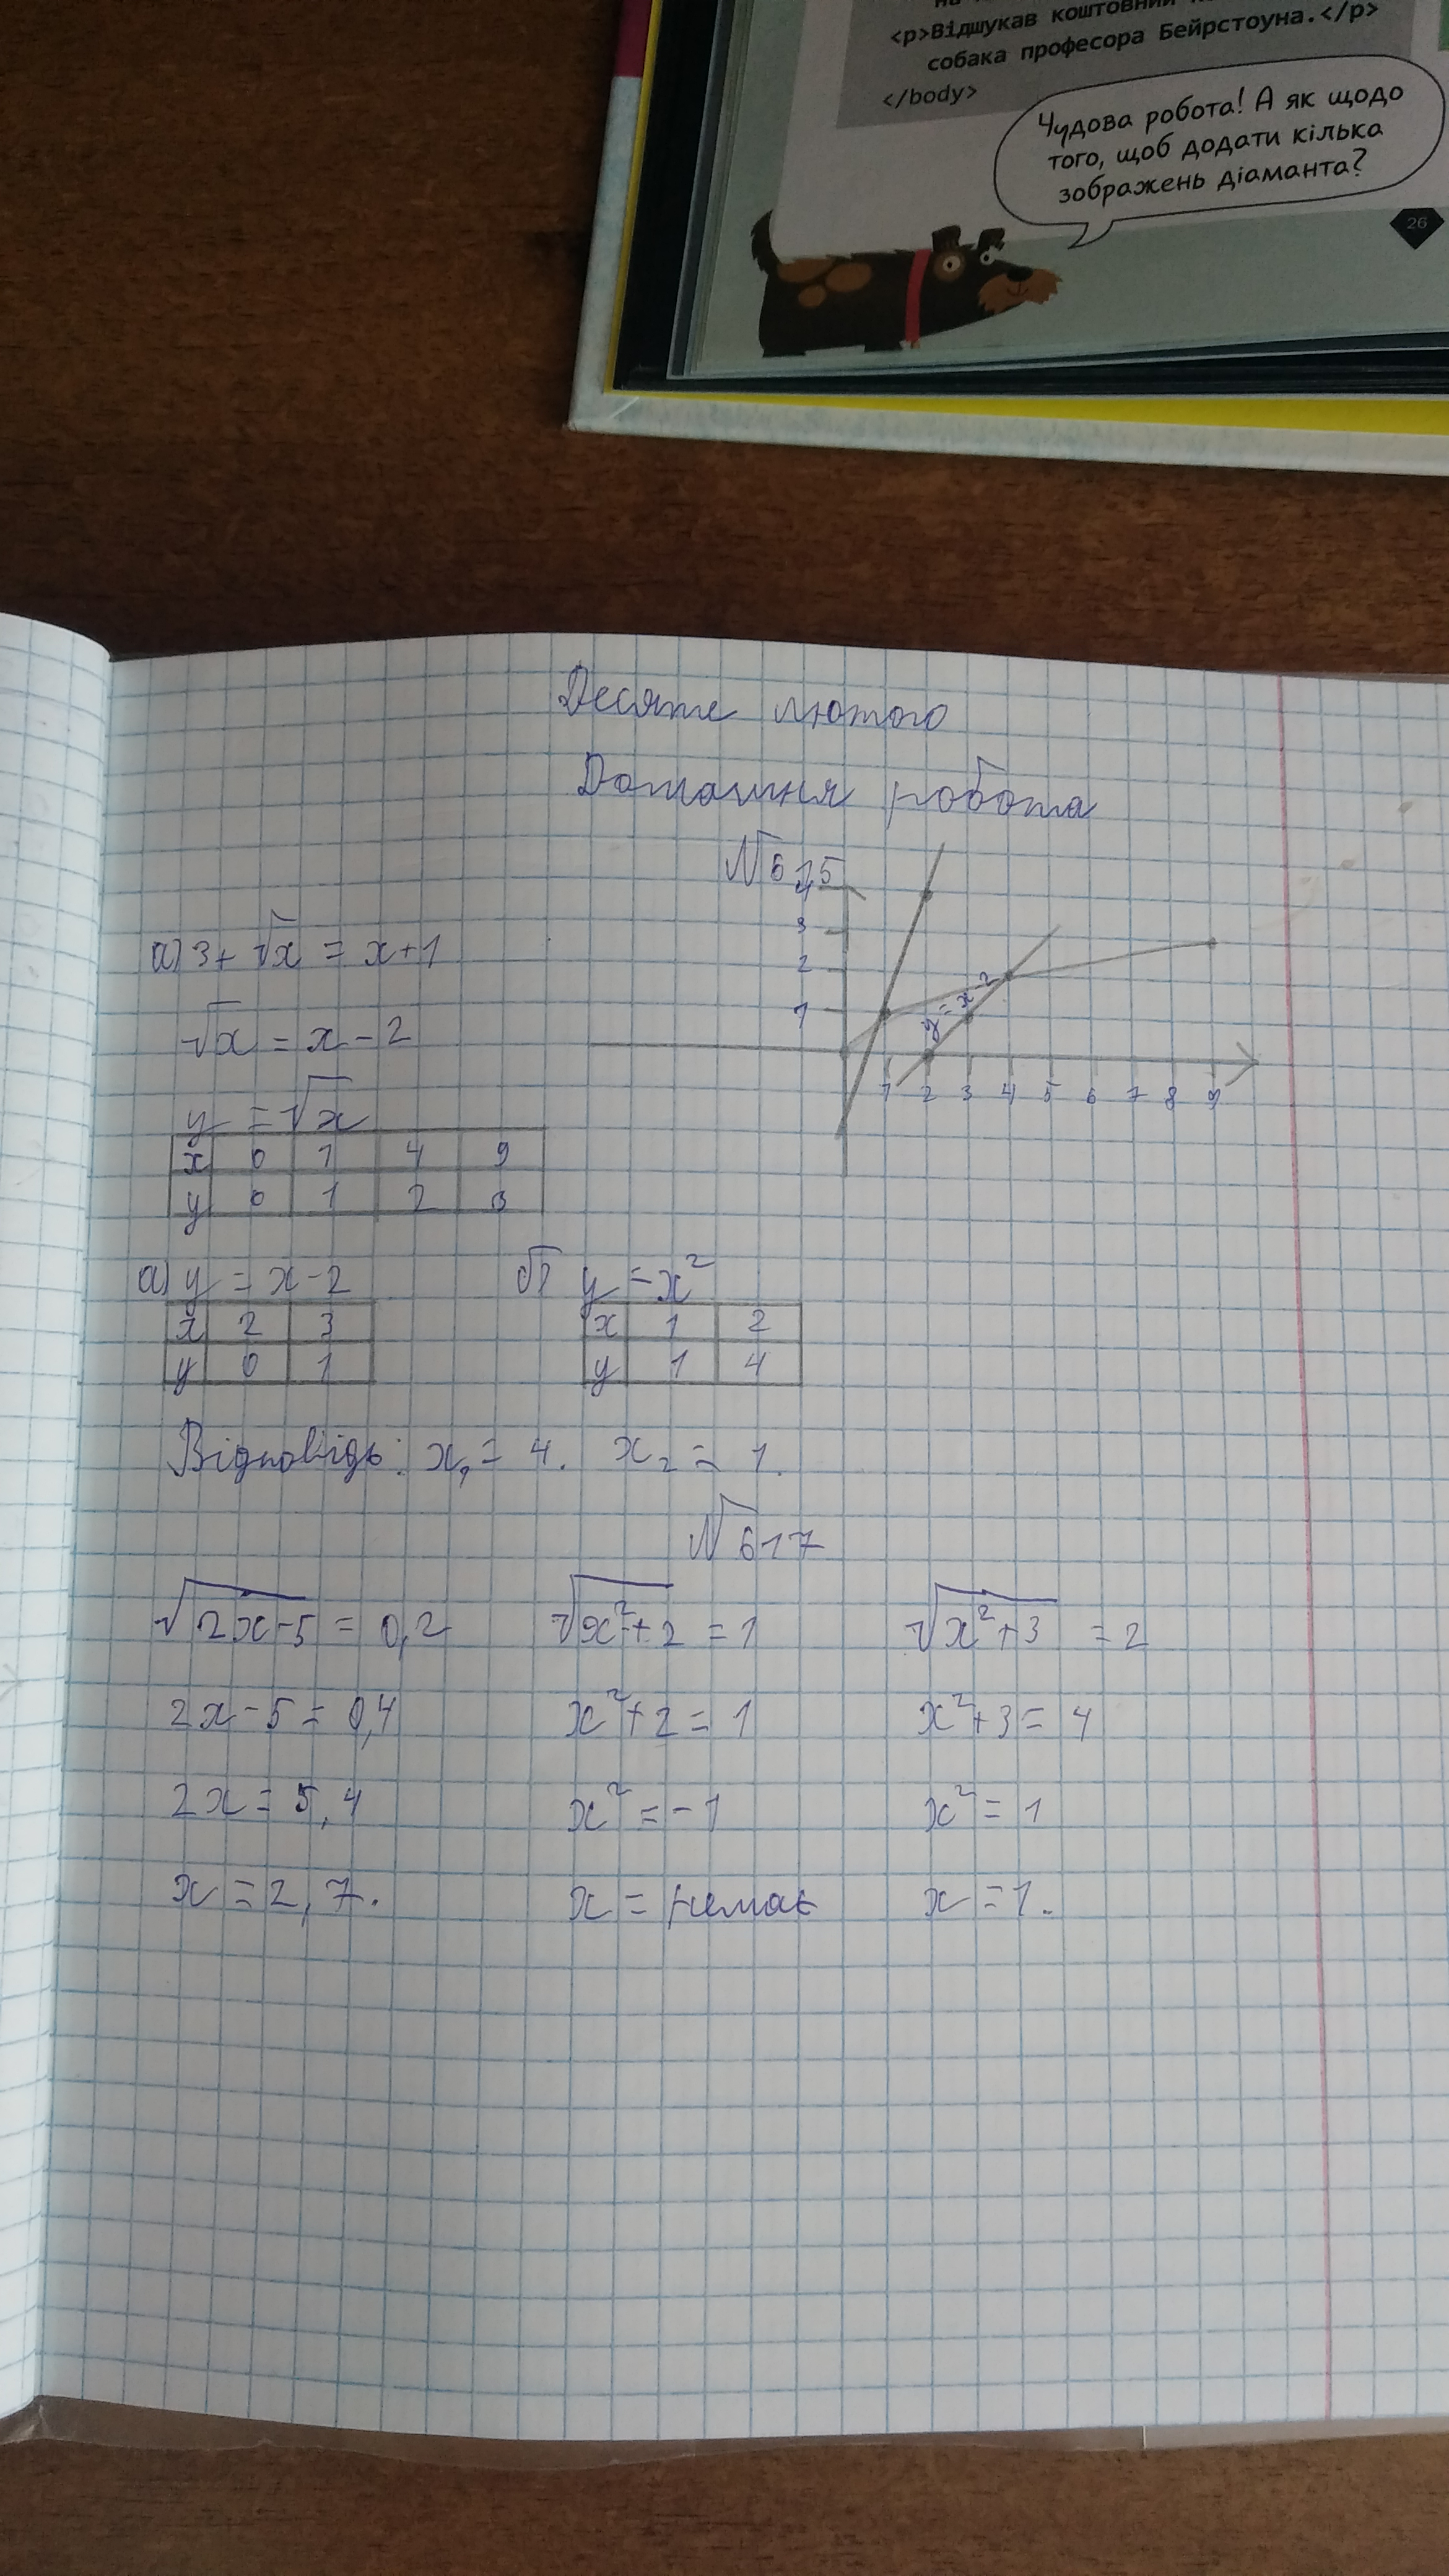 <p>Відшукав коштовний
собака професора Бейрстоуна.</p>
</body>
Чудова робота! А як щодо
того, щоб додати кілька
зображень діаманта?
26
Десяте лютого
Домашня робота
№615
а) 3+√x = x+1
√x = x-2
y = √x
x 0 1 4 9
y 0 1 2 3
4
3
2
1
y = x-2
1 2 3 4 5 6 7 8 9
а) y = x-2
x 2 3
y 0 1
б) y = x²
x 1 2
y 1 4
Відповідь: x₁ = 4. x₂ = 1.
№617
√(2x-5) = 0,2
2x-5 = 0,4
2x = 5,4
x = 2,7.
√(x²+2) = 1
x²+2 = 1
x² = -1
x = немає
√(x²+3) = 2
x²+3 = 4
x² = 1
x = 1.